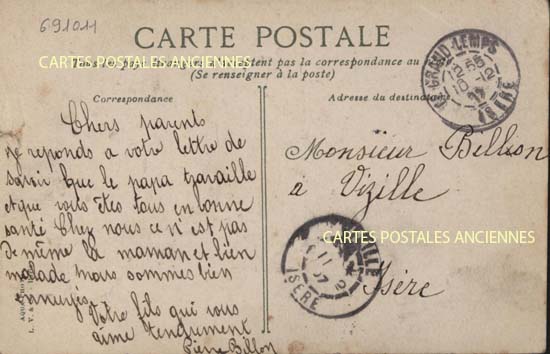 691011
CARTE POSTALE
CARTES POSTALES ANCIENNES
Tous les pays étrangers n'acceptent pas la correspondance au
(Se renseigner à la poste)
Correspondance
Adresse du destinataire
GRAND-LEMPS
ISERE
Chers parents
je reponds a votre lettre de
savoir que le papa travaille
et que vous êtes tous en bonne
santé Chez nous ce n'est pas
de même la maman et bien
malade nous sommes bien
ennuyés
Votre fils qui vous
aime tendrement
Pierre Billon
Monsieur Bellion
à Vizille
CARTES POSTALES ANCIENNES
Isère
ISERE